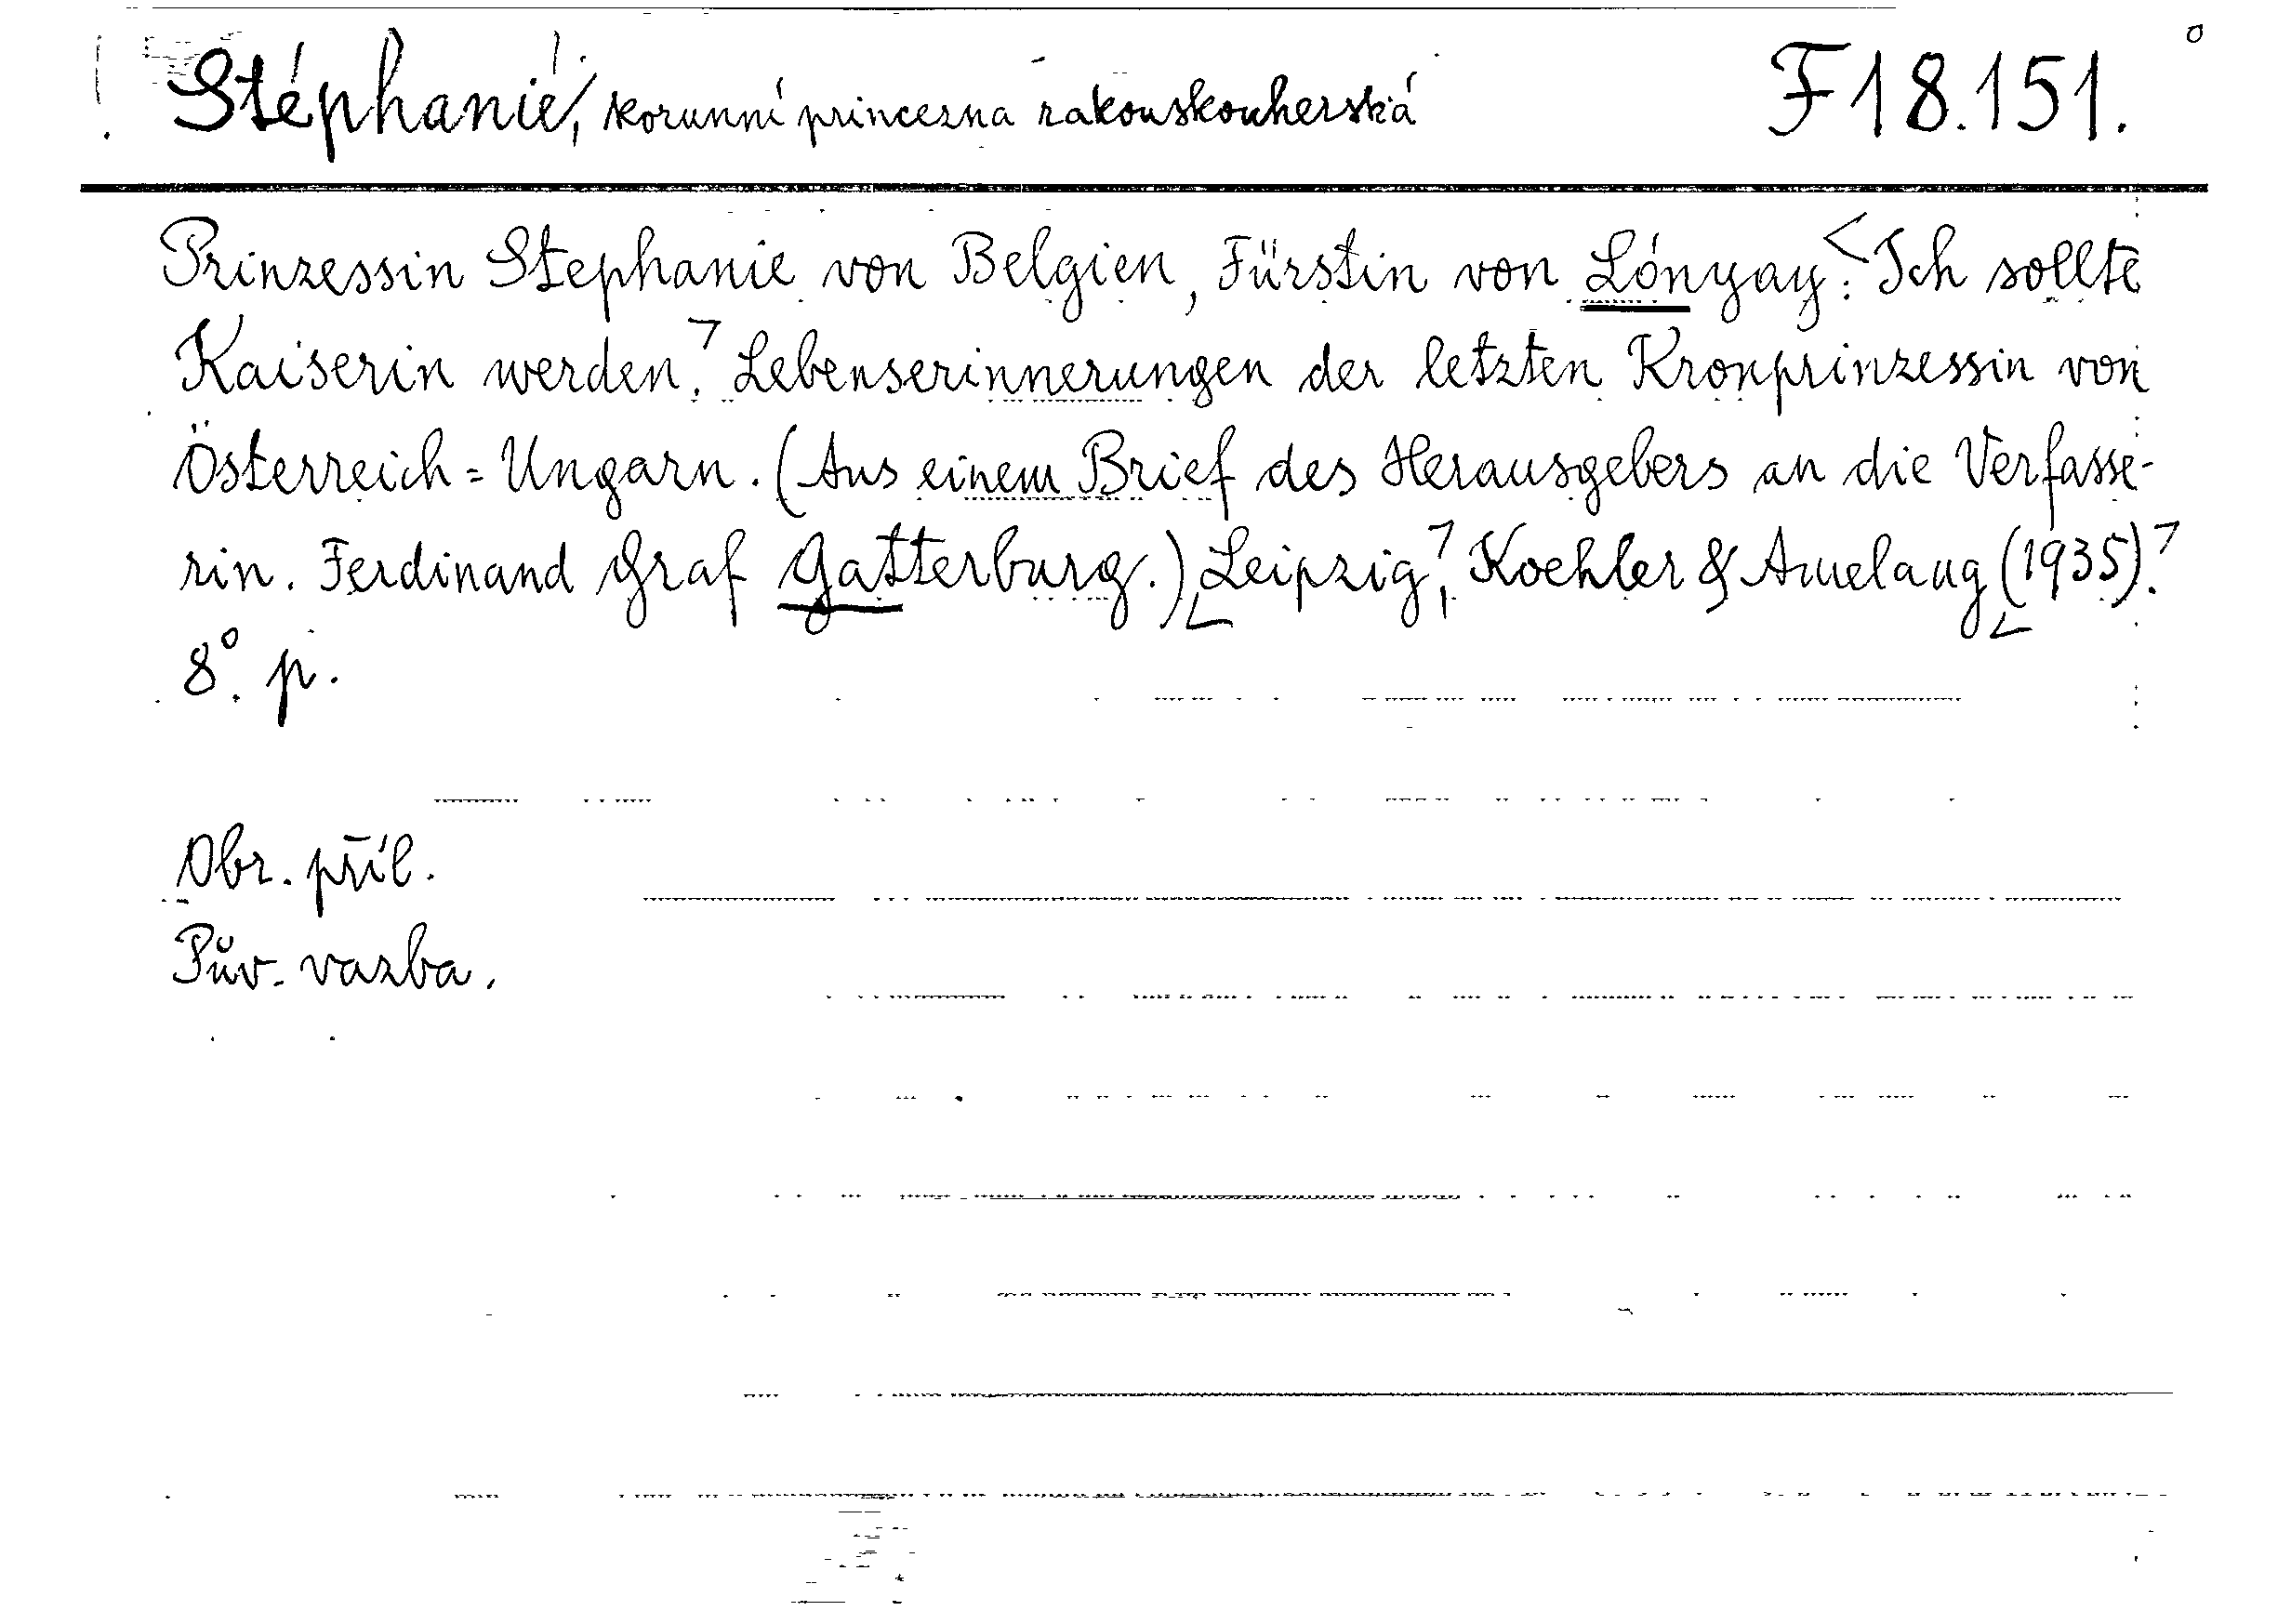 Stéphanie, korunní princezna rakouskouherská F 18.151.
Prinzessin Stephanie von Belgien, Fürstin von Lónyay: <Ich sollte
Kaiserin werden.> Lebenserinnerungen der letzten Kronprinzessin von
Österreich=Ungarn. (Aus einem Brief des Herausgebers an die Verfasse-
rin. Ferdinand Graf Gatterburg.) <Leipzig>, Koehler & Amelang <(1935).>
8°. p.
Obr. příl.
Pův. vazba.